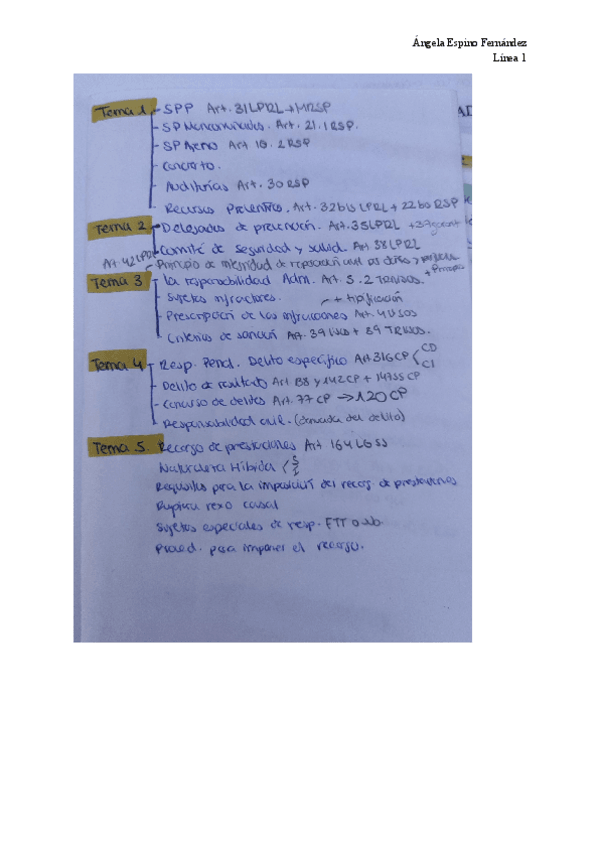 Ángela Espino Fernández
Línea 1
Tema 1 - SPP Art. 31 LPRL + MRSP
- SP Mancomunados. Art. 21.1 RSP.
- SP Ajeno Art 16.2 RSP
- Concierto.
- Auditorías Art. 30 RSP
- Recursos Preventivos. Art. 32 bis LPRL + 22 bis RSP
Tema 2 - Delegados de prevención. Art. 35 LPRL + 37
- Comité de seguridad y salud. Art 38 LPRL
Art. 42 LPRL - Principio de integridad de reparación de daños y
+ Principio
Tema 3 - La responsabilidad Adm. Art. 5.2 TRLISOS.
- Sujetos infractores. + tipificación
- Prescripción de las infracciones Art. 4 LISOS
- Criterios de sanción Art. 39 LISOS + 89 TRLISOS.
Tema 4 - Resp. Penal. Delito específico Art 316 CP CD
CI
- Delito de resultado Art. 138 y 142 CP + 147 SS CP
- Concurso de delitos Art. 77 CP → 120 CP
- Responsabilidad civil - (derivada del delito)
Tema 5. Recargo de prestaciones Art 164 LGSS
Naturaleza Híbrida S
I
Requisitos para la imposición del recarg. de prestaciones
Ruptura nexo causal
Sujetos especiales de resp. ETT o sub
Proced. para imponer el recargo.